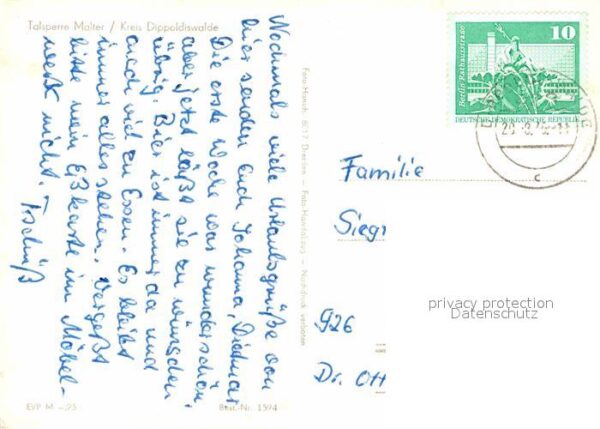 Talsperre Malter / Kreis Dippoldiswalde
Nochmals viele Urlaubsgrüße von
hier senden Euch Johanna, Dietmar
Die erste Woche war wunderschön,
aber jetzt läßt sie zu wünschen
übrig. Bier ist immer da und
auch viel zu Essen. Es bleibt
immer alles stehen. Vergeßt
bitte mein Eßkarte im Möbel-
werk nicht. Tschüß
EVP M –,25
Best.-Nr. 1594
Foto-Handzug – Nachdruck verboten
10
Berlin-Rathausstraße
DEUTSCHE DEMOKRATISCHE REPUBLIK
c
Familie
Siegr
926
Dr. Ott
privacy protection
Datenschutz